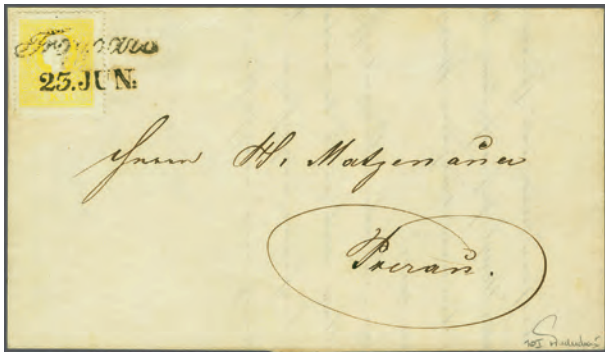 Troppau
25.JUN:
Herrn H. Matzenauer
Prerau.